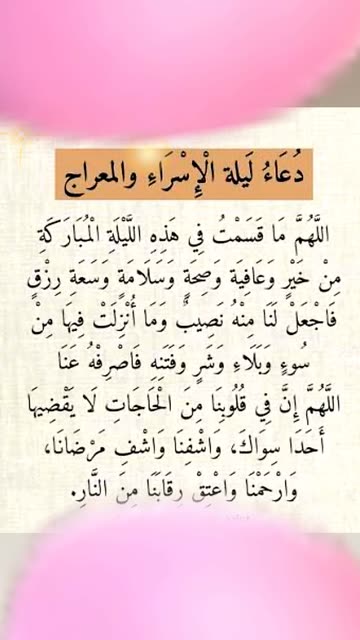 دُعَاءُ لَيلة الْإِسْرَاءِ والمعراج
اللَّهُمَّ مَا قَسَمْتُ فِي هَذِهِ اللَّيْلَةِ الْمُبَارَكَةِ
مِنْ خَيْرٍ وَعَافِيَة وَصِحَةٍ وَسَلَامَةٍ وَسَعَةِ رِزْقٍ
فَاجْعَلْ لَنَا مِنْهُ نَصِيبٌ وَمَا أُنْزِلَتْ فِيهَا مِنْ
سُوءٍ وَبَلَاءِ وَشَرٍ وَفَتَنِهِ فَاصْرِفْهُ عَنَا
اللَّهُمَّ إِنَّ فِي قُلُوبِنَا مِنَ الْحَاجَاتِ لَا يَقْضِيهَا
أَحَدَا سِوَاكَ، وَاشْفِنَا وَاشْفِ مَرْضَانَا،
وَارْحَمْنَا وَاعْتِقْ رِقَابَنَا مِنَ النَّارِ.